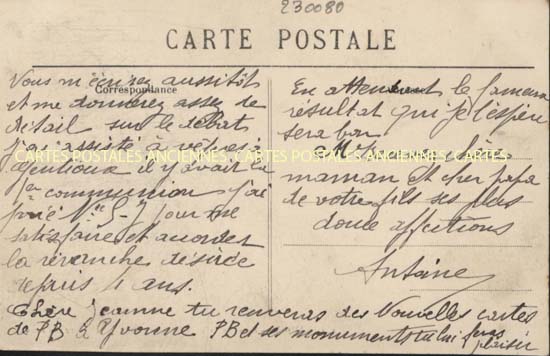 230080
CARTE POSTALE
Correspondance
Vous m'écrirez aussitôt
et me donnerez assez de
détail sur le débat
j'ai assisté à vêpres à
il y avait la
1ère communion j'ai
prié N. S. J pour me
satisfaire et accorder
la revanche désirée
depuis 4 ans.
En attendant le fameux
résultat qui je l'espère
sera bon
maman et cher papa
de votre fils ses plus
douce affections
Antoine
CARTES POSTALES ANCIENNES CARTES POSTALES ANCIENNES CARTES
Chère Jeanne tu renverras des Nouvelles cartes
de PB à Yvonne PB et ses monuments tu lui feras
plaisir